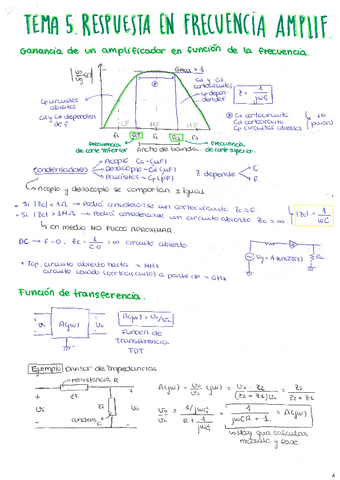 TEMA 5. RESPUESTA EN FRECUENCIA AMPLIF.
Ganancia de un amplificador en función de la frecuencia.
Gmax > 1
Cp circuitos abiertos
Ca y Cd dependen de f
Ca y Cd cortocircuitos
Cp depende de f
Z = 1/jωC
LF MF HF
Ca cortocircuito
Cd cortocircuito
Cp circuitos abiertos
f1 f2
frecuencia de corte inferior
Ancho de banda
frecuencia de corte superior
Condensadores
Acoplo Ca ~ (μF)
Desacoplo ~ Cd (μF)
Parásitos ~ Cp (pF)
Z depende C f
Acoplo y desacoplo se comportan ± igual
• Si |Zc| < 1Ω → Podrá considerarse un cortocircuito Zc ≈ 0
• Si |Zc| > 1MΩ → Podrá considerarse un circuito abierto Zc ≈ ∞
|Zc| = 1/ωC
en medio NO PUEDO APROXIMAR.
DC → f = 0, Zc = 1/C·0 = ∞ circuito abierto.
• Zcp circuito abierto hasta ~ MHz
circuito cerrado (cortocircuito) a partir de ~ GHz
Función de transferencia.
Ui A(jω) Uo
A(jω) = Uo/Ui
Función de Transferencia
TDT
Ejemplo Divisor de impedancias
resistencia R
Z1
Ui Z2 Uo
A(jω) = Uo/Ui (jω) = Ui · Z2/(Z2 + Z1)Ui = Z2/Z2 + Z1
Uo/Ui = 1/jωC / R + 1/jωC = 1/jωCR + 1 = A(jω)
Hay que calcular
módulo y fase.